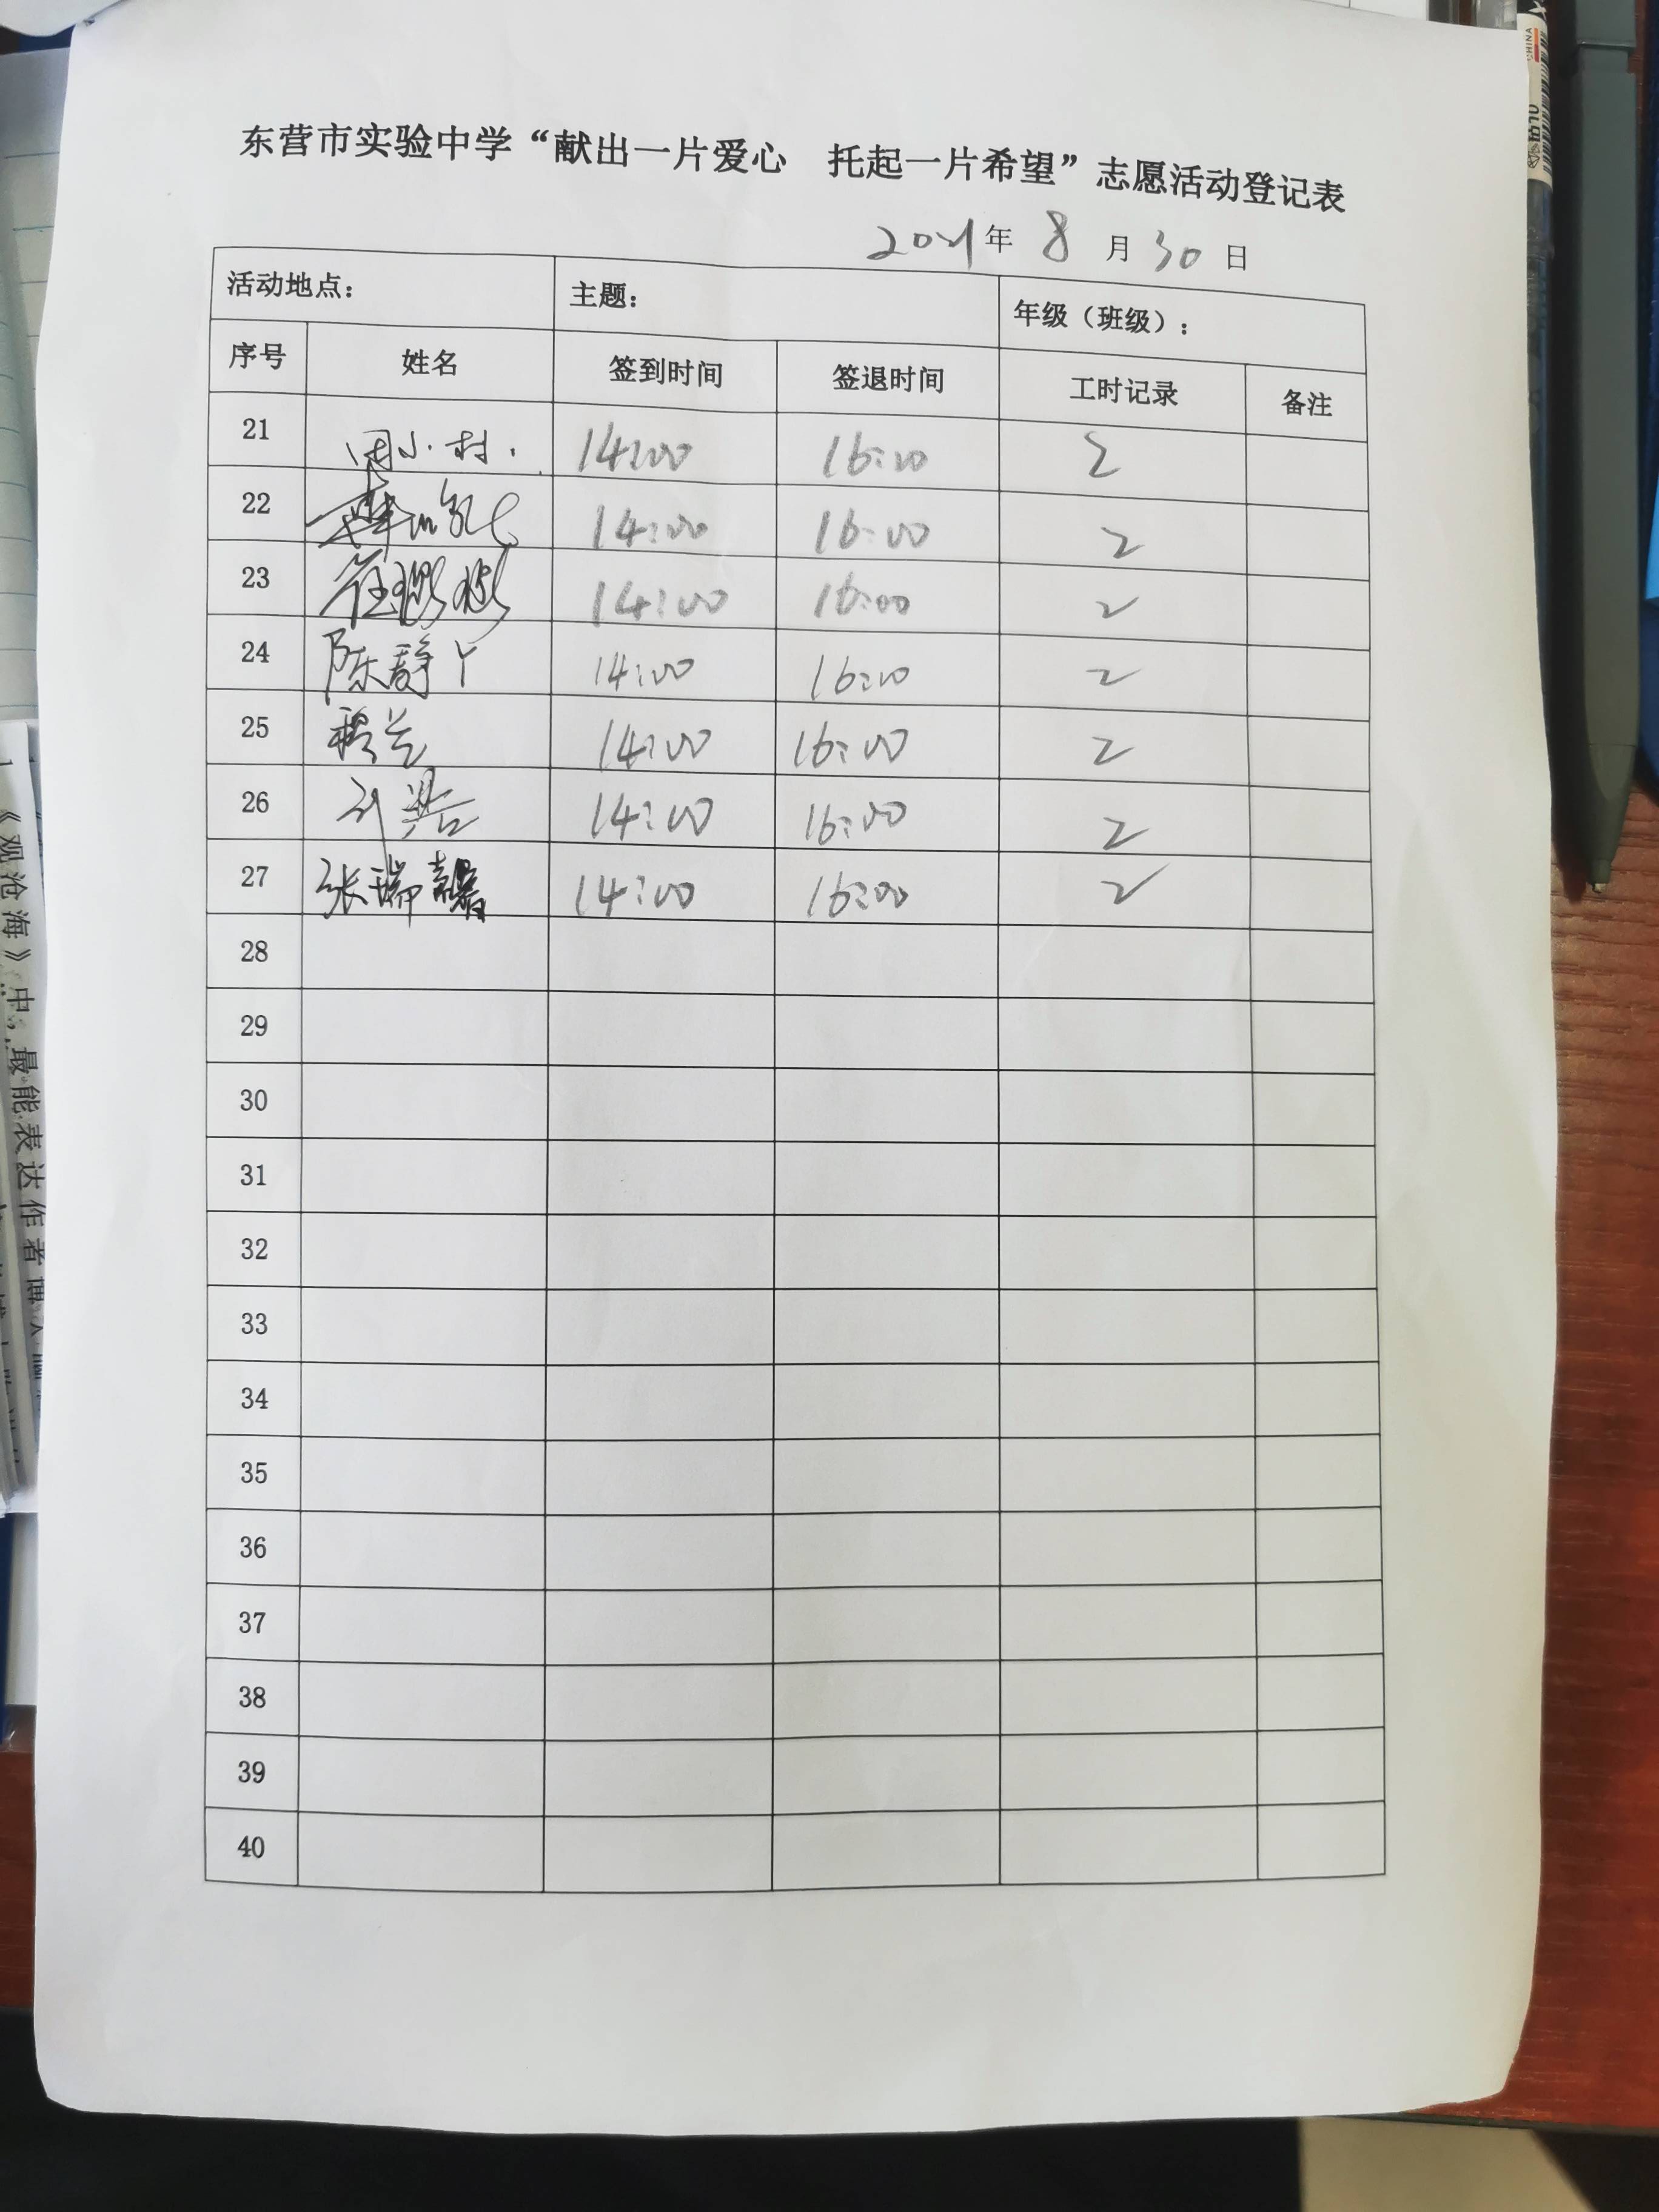 东营市实验中学“献出一片爱心 托起一片希望”志愿活动登记表
2021年 8 月 30 日
活动地点： 主题： 年级（班级）：
序号 姓名 签到时间 签退时间 工时记录 备注
21 周小村 14:00 16:00 2
22 14:00 16:00 2
23 14:00 16:00 2
24 陈静 14:00 16:00 2
25 14:00 16:00 2
26 刘 14:00 16:00 2
27 张瑞馨 14:00 16:00 2
28
29
30
31
32
33
34
35
36
37
38
39
40
《观沧海》中，最能表达作者博大
CHINA